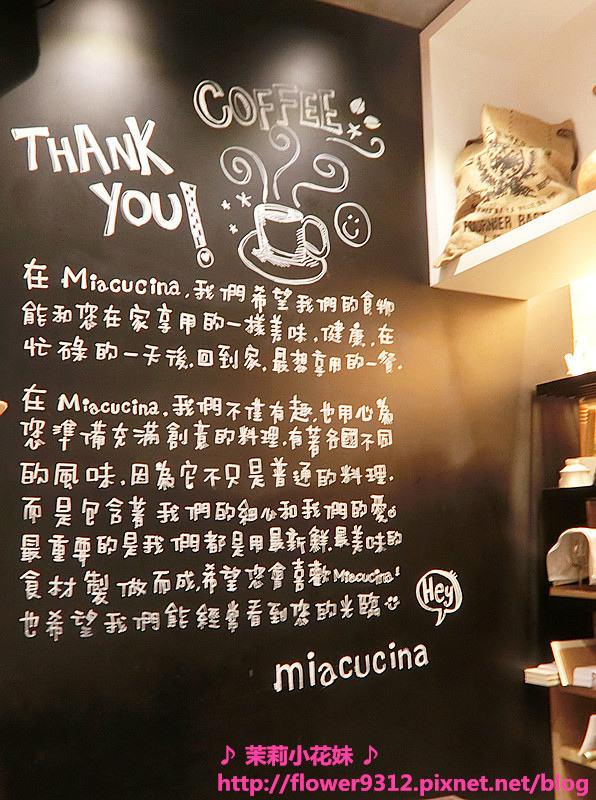 COFFEE
THANK
YOU!
在 Miacucina,我們希望我們的食物
能和您在家享用的一樣美味,健康,在
忙碌的一天後,回到家,最想享用的一餐.
在 Miacucina,我們不僅有趣,也用心為
您準備充滿創意的料理,有著各國不同
的風味,因為它不只是普通的料理.
而是包含著我們的細心和我們的愛
最重要的是我們都是用最新鮮.最美味的
食材製做而成,希望您會喜歡Miacucina!
也希望我們能經常看到您的光臨
Hey
miacucina
FOURNIER
♪ 茉莉小花妹 ♪
http://flower9312.pixnet.net/blog